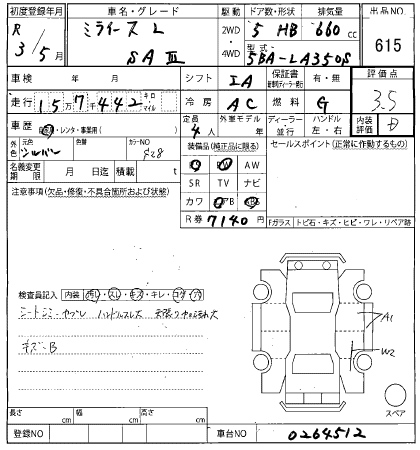 初度登録年月 車名・グレード 駆動 ドア数・形状 排気量 出品NO.
R 3/5月 ミライース L SAⅢ 2WD・4WD 5 HB 660 cc 615
型式 5BA-LA350S
車検 年 月 シフト IA 保証書 有・無 評価点
走行 15万7千442 キロ マイル 冷房 AC 燃料 G 3.5
車歴 レンタ・事業用( ) 定員 4人 外車モデル 年 ディーラー 並行 ハンドル 左・右 内装評価 D
外色 元色 シルバー 色替 カラーNO S28 装備品(純正品に限る) セールスポイント(正常に作動するもの)
名義変更期限 月 日迄 積載 t PS PW AW
SR TV ナビ
注意事項(欠品・修復・不具合箇所および状態) カワ エアB ABS
R券 7140円 Fガラス トビ石・キズ・ヒビ・ワレ・リペア跡
検査員記入 内装 汚れ・スレ・キズ・キレ・コゲ・穴
シートシミ・ヤブレ ハンドルスレ大 天張り中央汚れ大
キズ-B
A1
W2
スペア
長さ cm 幅 cm 高さ cm
登録NO 車台NO 0264512